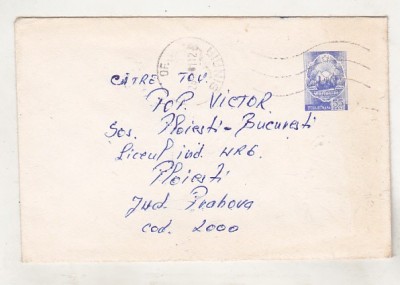 CĂTRE TOV.
POP. VICTOR
Sos. Ploiesti-Bucuresti
Liceul ind. NR6.
Ploiesti
Jud. Prahova
cod. 2000
55